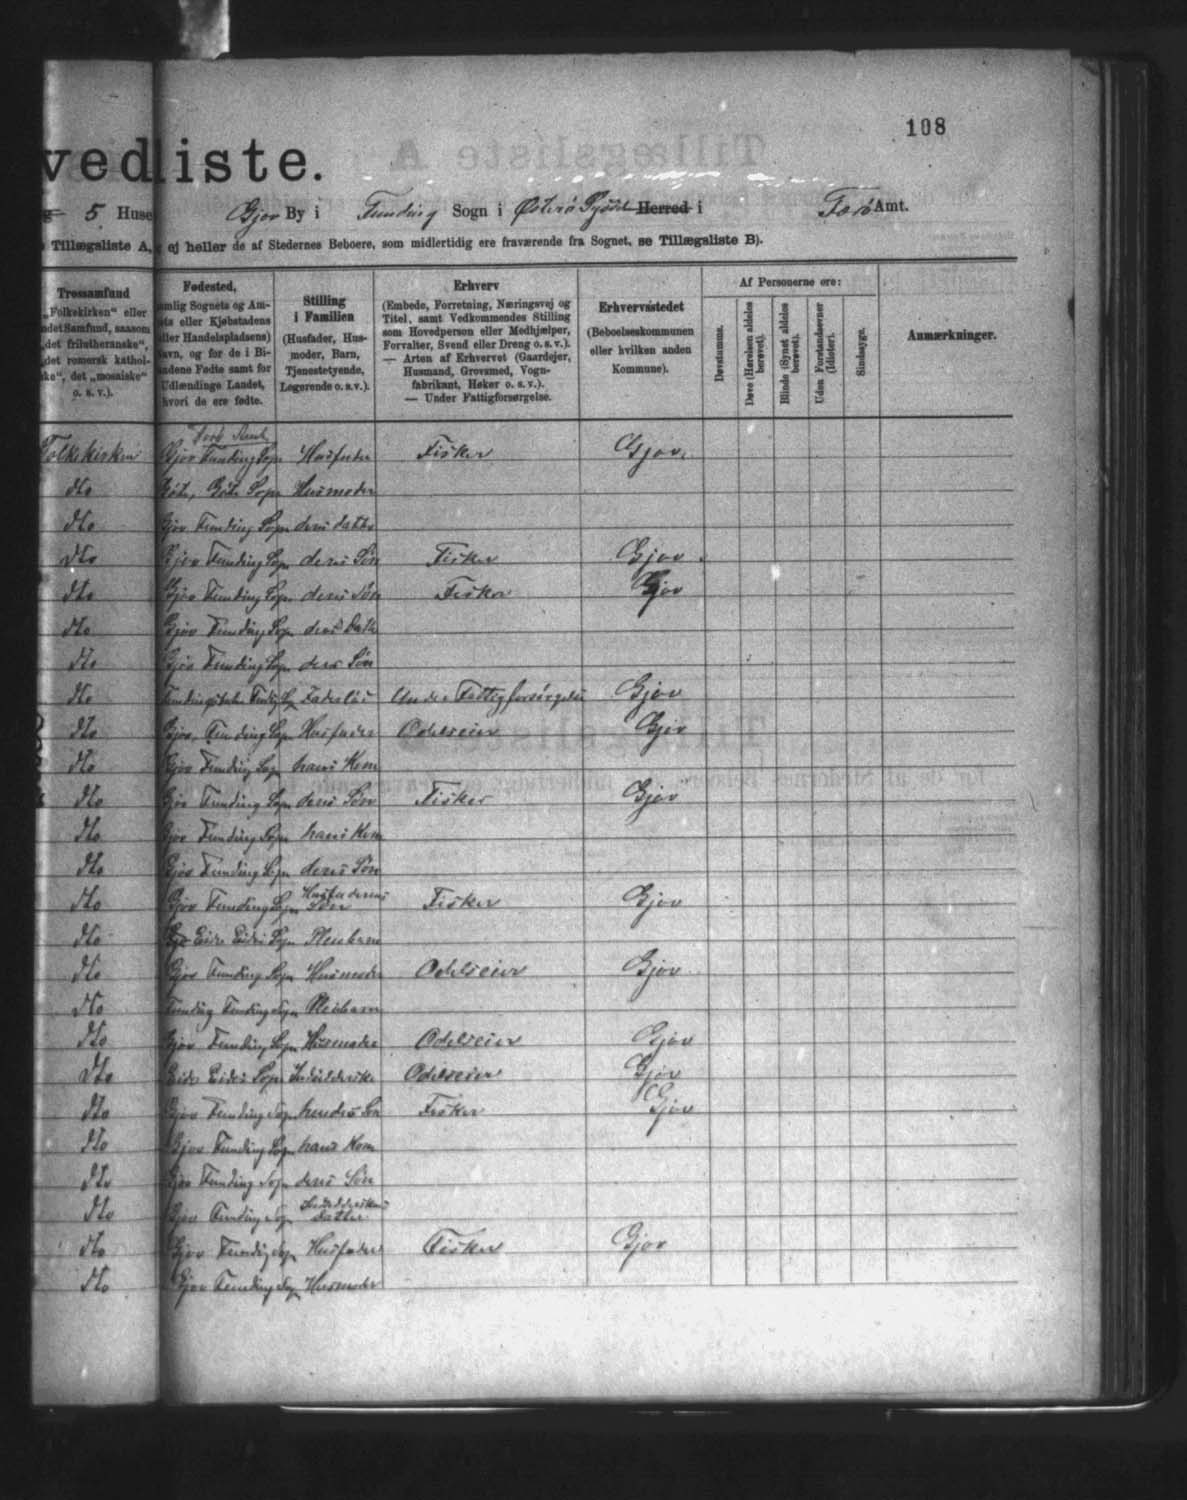 108
vedliste.
5 Huse Gjov By i Funding Sogn i Østerø Syssel Herred i Færø Amt.
Tillægsliste A, ej heller de af Stedernes Beboere, som midlertidig ere fraværende fra Sognet, se Tillægsliste B).
Trossamfund
„Folkekirken“ eller
andet Samfund, saasom
„det frilutheranske“,
„det romersk kathol-
ske“, det „mosaiske“
o. s. v.).
Fødested,
nemlig Sognets og Am-
tets eller Kjøbstadens
(eller Handelspladsens)
Navn, og for de i Bi-
landene Fødte samt for
Udlændinge Landet,
hvori de ere fødte.
Stilling
i Familien
(Husfader, Hus-
moder, Barn,
Tjenestetyende,
Logerende o. s. v.).
Erhverv
(Embede, Forretning, Næringsvej og
Titel, samt Vedkommendes Stilling
som Hovedperson eller Medhjælper,
Forvalter, Svend eller Dreng o. s. v.).
— Arten af Erhvervet (Gaardejer,
Husmand, Grovsmed, Vogn-
fabrikant, Høker o. s. v.).
— Under Fattigforsørgelse.
Erhvervsstedet
(Beboelseskommunen
eller hvilken anden
Kommune).
Af Personerne ere:
Døvstumme.
Døve (Hørelsen aldeles berøvet).
Blinde (Synet aldeles berøvet).
Uden Forstandsevner (Idioter).
Sindssyge.
Anmærkninger.
Folkekirken Gjov Funding Sogn Husfader Fisker Gjov.
do Göte, Göte Sogn Husmoder
do Gjov Funding Sogn deres datter
do Gjov Funding Sogn deres Søn Fisker Gjov
do Gjov Funding Sogn deres Søn Fisker Gjov
do Gjov Funding Sogn deres Datt
do Gjov Funding Sogn deres Søn
do Funding Sogn Faderløs Under Fattigforsørgelse Gjov
do Gjov, Funding Sogn Husfader Odelseier Gjov
do Gjov Funding Sogn hans Kone
do Gjov Funding Sogn deres Søn Fisker Gjov
do Gjov Funding Sogn hans Kone
do Gjov Funding Sogn deres Søn
do Gjov Funding Sogn Husfaderens Søn Fisker Gjov
do Eide Eides Sogn Pleiebarn
do Gjov Funding Sogn Husmoder Odelseier Gjov
do Funding Funding Sogn Pleiebarn
do Gjov Funding Sogn Husmoder Odelseier Gjov
do Eide Eides Sogn Odelseier Gjov
do Gjov Funding Sogn hendes Søn Fisker Gjov
do Gjov Funding Sogn hans Kone
do Gjov Funding Sogn deres Søn
do Gjov Funding Sogn Datter
do Gjov Funding Sogn Husfader Fisker Gjov
do Gjov Funding Sogn Husmoder